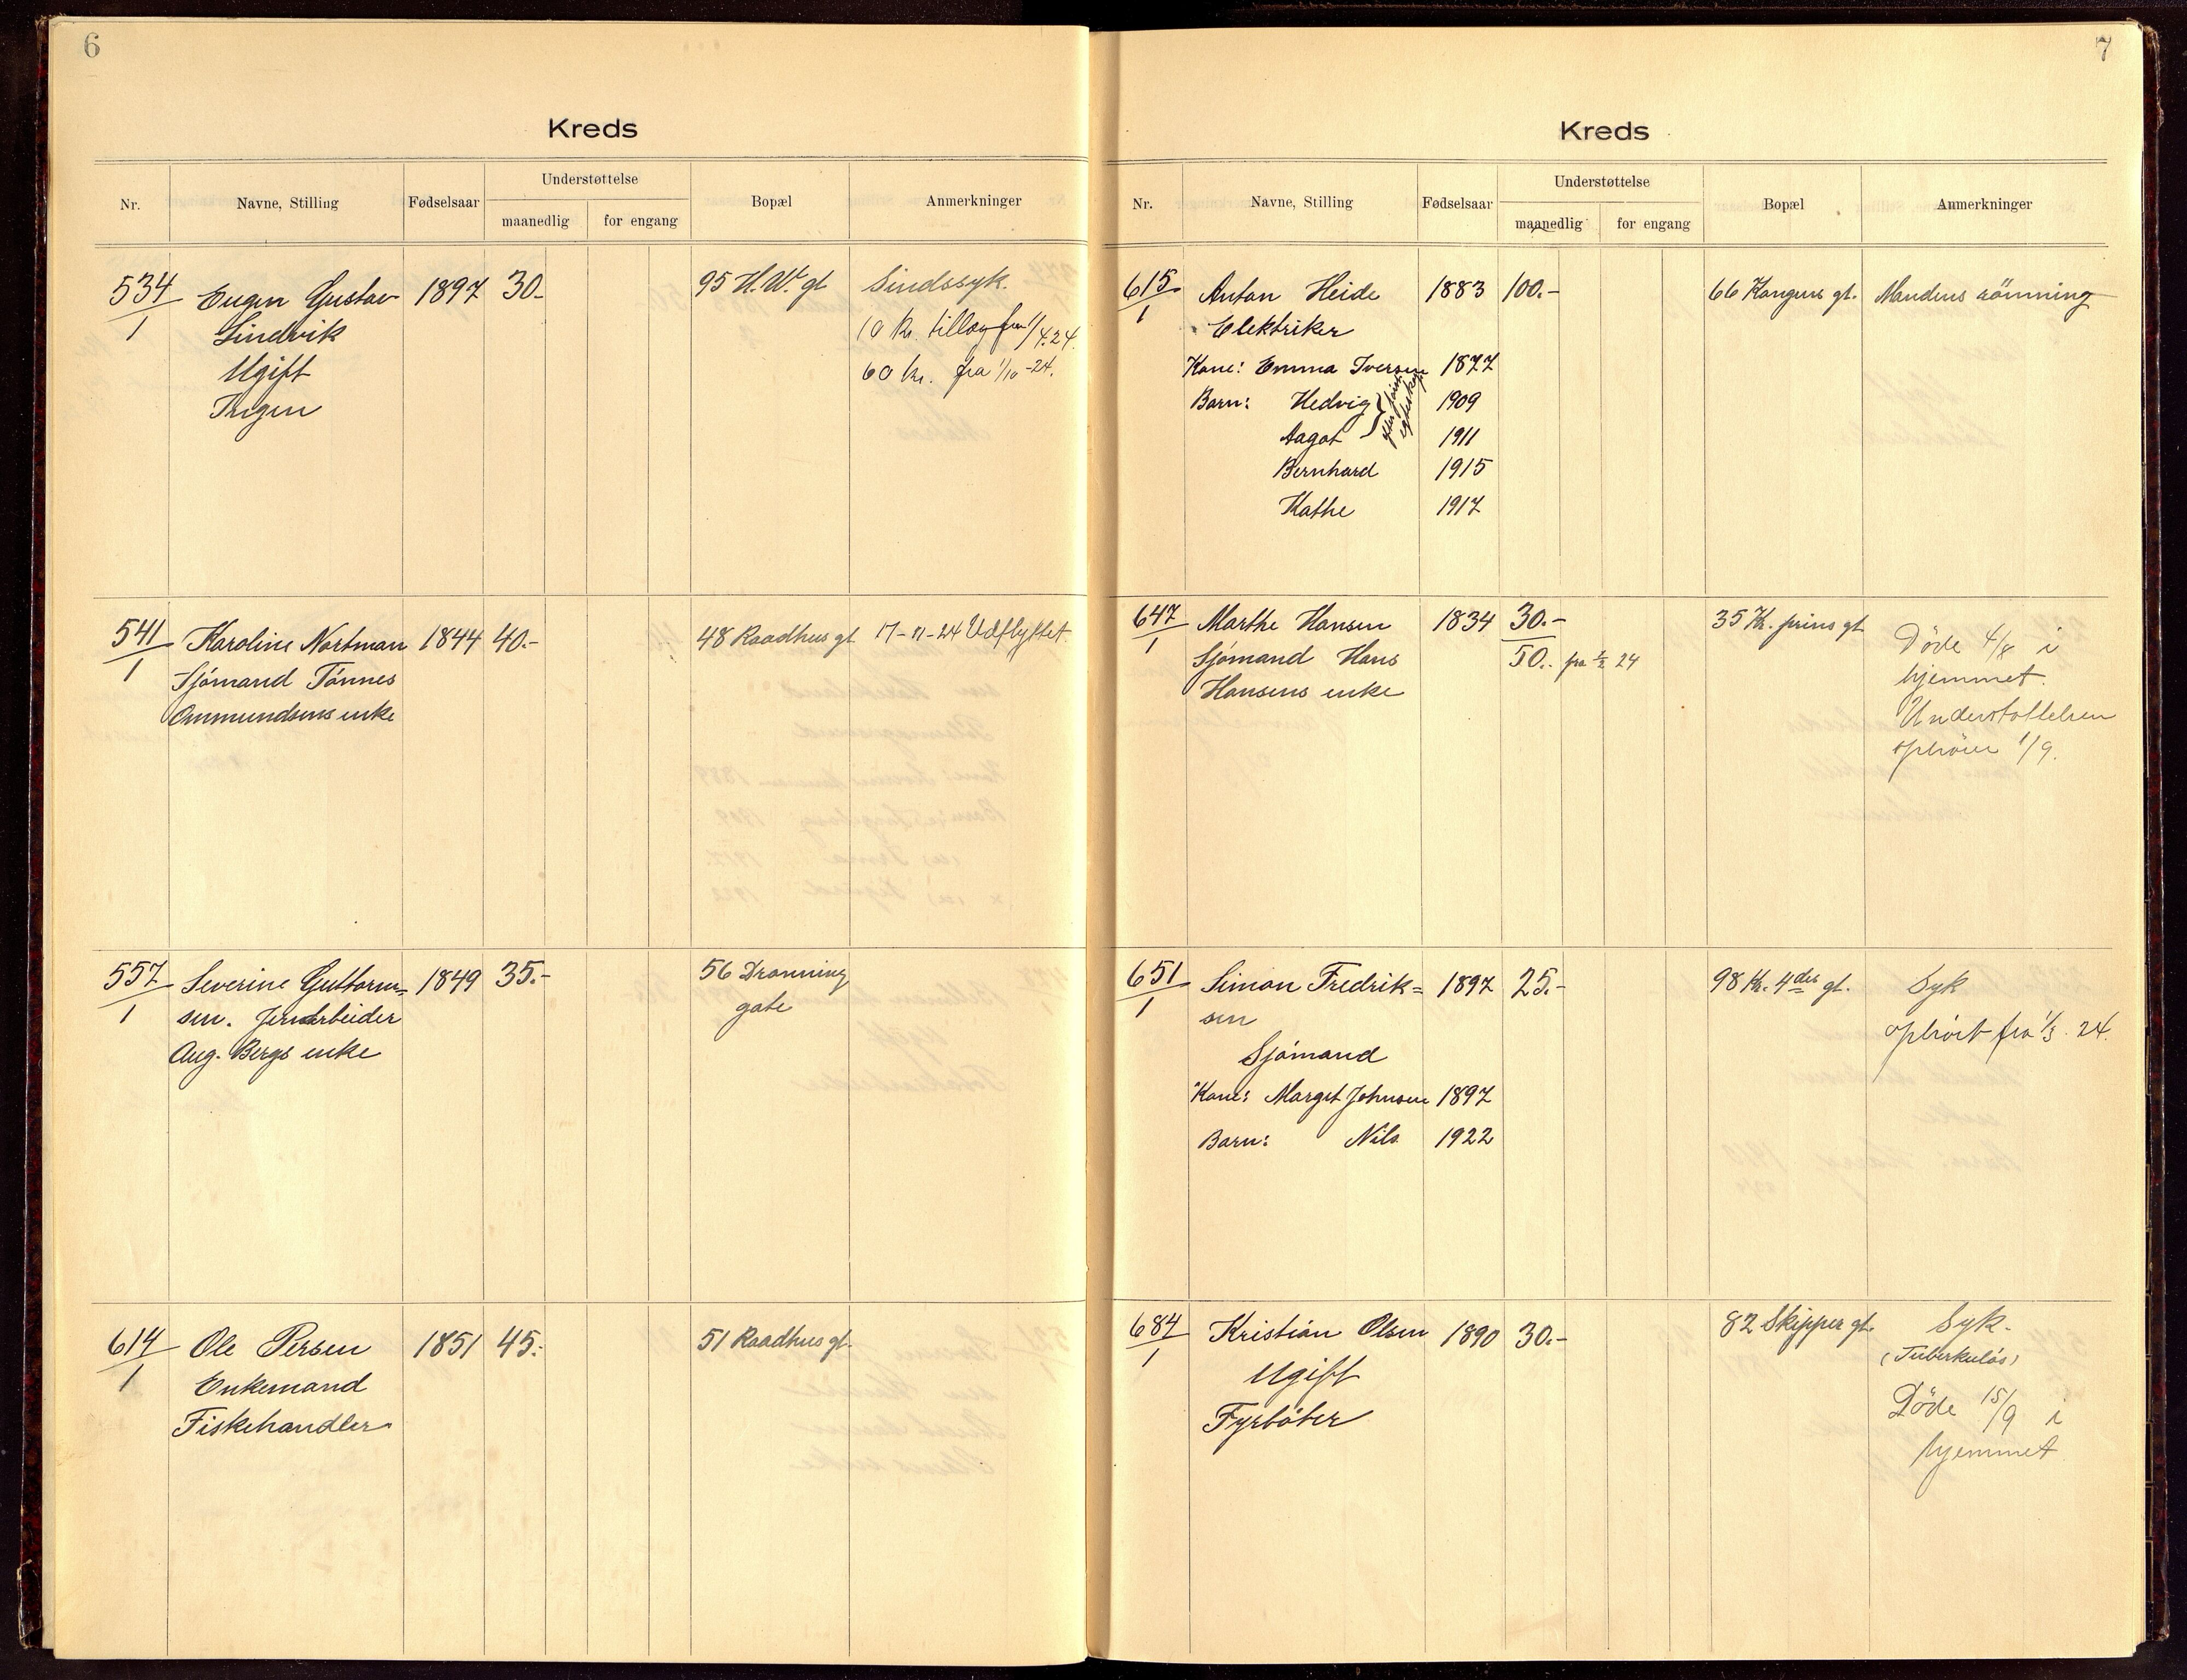 6
Kreds
Nr.
Navne, Stilling
Fødselsaar
Understøttelse
maanedlig
for engang
Bopæl
Anmerkninger
534/1
Eugen Gustav
1897
30.-
95 H.W. gt
Sindssyk.
Lindvik
10 kr. tillæg fra 1/4.24.
Ugift
60 kr. fra 1/10-24.
Ingen
541/1
Karoline Nortman
1844
40.-
48 Raadhus gt
17-11-24 Udflyttet.
Sjømand Tønnes
Ommundsens enke
557/1
Severine Guttorm=
1849
35.-
56 Dronning
sen. Jernarbeider
gate
Aug. Bergs enke
614/1
Ole Persen
1851
45.-
51 Raadhus gt.
Enkemand
Fiskehandler
7
Kreds
Nr.
Navne, Stilling
Fødselsaar
Understøttelse
maanedlig
for engang
Bopæl
Anmerkninger
615/1
Anton Heide
1883
100.-
66 Kongens gt.
Mandens rømning
Elektriker
Kone: Emma Iversen 1877
Barn: Hedvig 1909
Aagot 1911
efter første egteskap
Bernhard 1915
Kathe 1917
647/1
Marthe Hansen
1834
30.-
35 Kr. prins gt
Døde 4/8 i
Sjømand Hans
50.- fra 1/2 24
hjemmet.
Hansens enke
Understøttelsen
ophører 1/9.
651/1
Simon Fredrik=
1897
25.-
98 Kr. 4des gt.
Syk
sen
ophørt fra 1/3. 24.
Sjømand
Kone: Margit Johnsen 1897
Barn: Nils 1922
684/1
Kristian Olsen
1890
30.-
82 Skipper gt.
Syk.
(Tuberkuløs)
Ugift
Døde 15/9 i
Fyrbøter
hjemmet